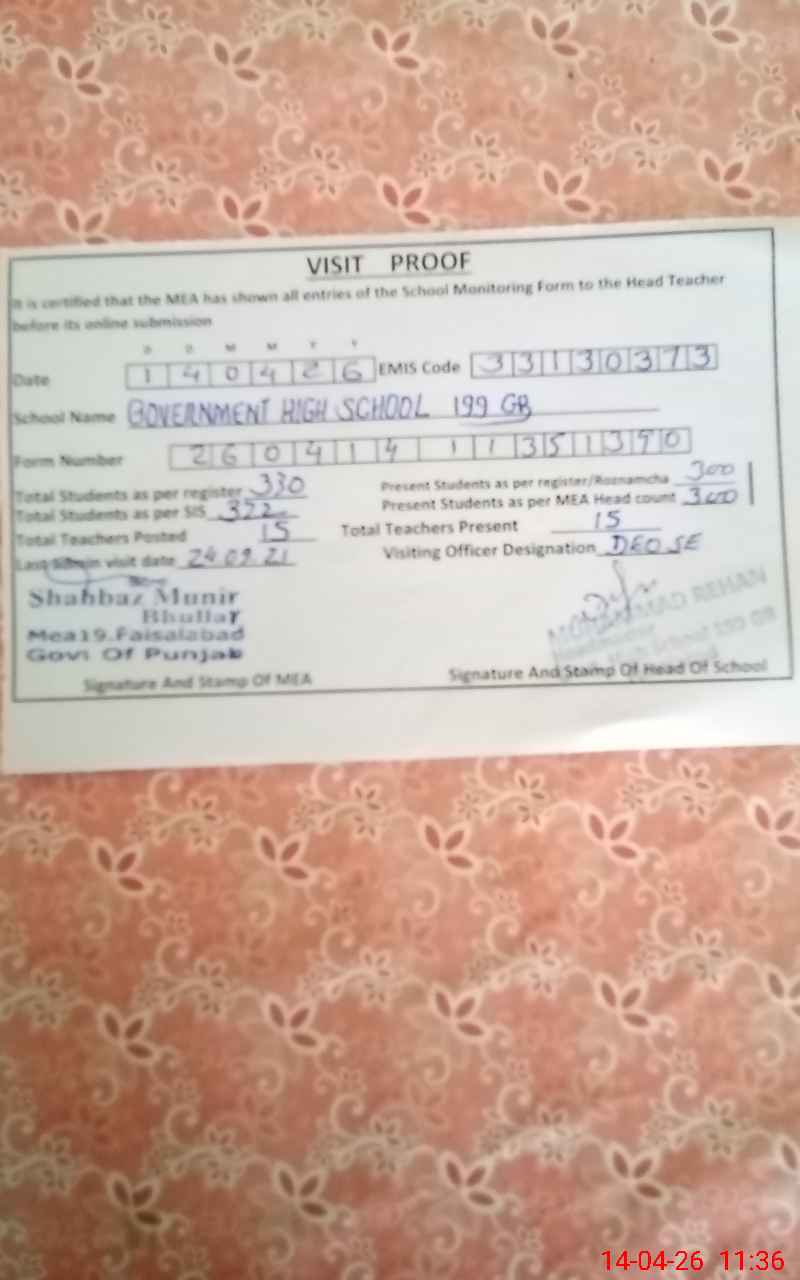 VISIT PROOF
It is certified that the MEA has shown all entries of the School Monitoring Form to the Head Teacher
before its online submission
D D M M Y Y
Date 1 4 0 4 2 6 EMIS Code 3 3 1 3 0 3 7 3
School Name GOVERNMENT HIGH SCHOOL 199 GB
Form Number 2 6 0 4 1 4 1 1 3 5 1 3 9 0
Total Students as per register 330 Present Students as per register/Roznamcha 300
Total Students as per SIS 322 Present Students as per MEA Head count 300
Total Teachers Posted 15 Total Teachers Present 15
Last visit date 24 09 21 Visiting Officer Designation DEO SE
Shahbaz Munir
Bhullar
Mea19.Faisalabad
Govt Of Punjab
MUHAMMAD REHAN
Headmaster
High School 199 GB
Signature And Stamp Of MEA Signature And Stamp Of Head Of School
14-04-26 11:36